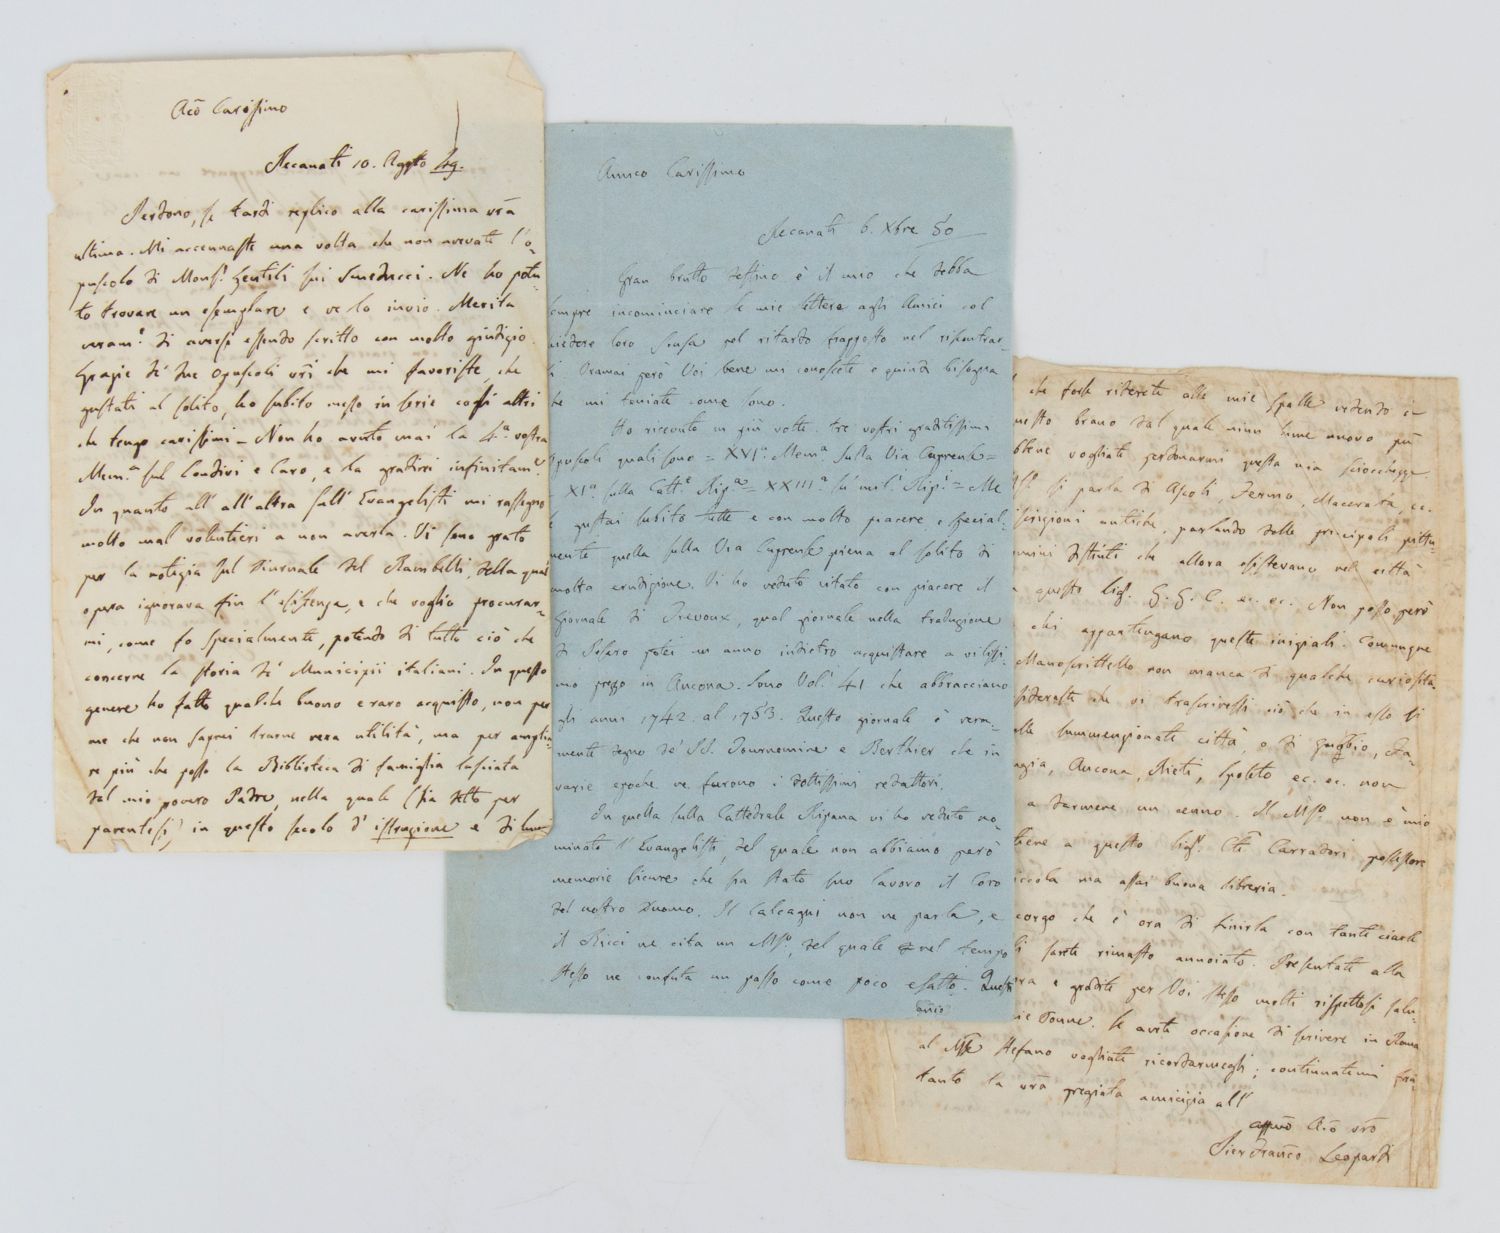 Aco Carissimo
Recanati 10. Agosto 49.
Perdono, se tardi replico alla carissima vra
ultima. Mi accennaste una volta che non avevate l'o-
puscolo di Monsr. Gentili sui Smeducci. Ne ho potu-
to trovare un esemplare e ve lo invio. Merita
veramte. di aversi essendo scritto con molto giudizio.
Grazie de' due Opuscoli vri che mi favoriste, che
gustati al solito, ho subito messo in serie cogli altri
che tengo carissimi - Non ho avuto mai la 4a. vostra
Mema. sul Condivi e Caro, e la gradirei infinitame.
In quanto all' all'altra sull' Evangelisti mi rassegno
molto mal volentieri a non averla. Vi sono grato
per la notizia sul Giornale del Rambelli, della qual
opera ignorava fin l'esistenza, e che voglio procurar-
mi, come fo specialmente, potendo di tutto ciò che
concerne la storia de' Municipii italiani. In questo
genere ho fatto qualche buono e raro acquisto, non per
me che non saprei trarne vera utilità, ma per amplia-
re più che posso la Biblioteca di famiglia lasciata
dal mio povero Padre, nella quale (sia detto per
parentesi) in questo secolo d' istruzione e di lumi
Amico Carissimo
Recanati 6. Xbre 50
Gran brutto destino è il mio che debba
empre incominciare le mie lettere agli Amici col
iedere loro scusa pel ritardo frapposto nel riscontrar-
li. Oramai però Voi bene mi conoscete e quindi bisogna
he mi teniate come sono.
Ho ricevuto in più volte tre vostri graditissimi
Opuscoli quali sono = XVIa. Mema. sulla Via Cuprense =
XIa. sulla Catte. Ripa. = XXIIIa su' mil.i Rip.i = Me
li gustai subito tutti e con molto piacere, e special-
mente quella sulla Via Cuprense piena al solito di
molta erudizione. Vi ho veduto citato con piacere il
Giornale di Trevoux, qual giornale nella traduzione
di Pesaro potei un anno indietro acquistare a vilissi-
mo prezzo in Ancona. Sono Vol.i 41 che abbracciano
gli anni 1742. al 1753. Questo giornale è vera-
mente degno de' SS. Tournemine e Berthier che in
varie epoche ne furono i dottissimi redattori.
In quella sulla Cattedrale Ripana vi ho veduto no-
minato l' Evangelisti, del quale non abbiamo però
memorie sicure che sia stato suo lavoro il Coro
del nostro Duomo. Il Calcagni non ne parla, e
il Ricci ne cita un MSo., del quale nel tempo
stesso ne confuta un passo come poco esatto. Questi
che forse riderete alle mie spalle vedendo
uesto brano dal quale niun lume nuovo più
bbene vogliate perdonarmi questa mia sciocchezza
si parla di Ascoli, Fermo, Macerata, ec.
iscrizioni antiche, parlando delle principali pittu-
mini distinti che allora esistevano nel città
questo Sigr. G. G. C. ec. ec. Non posso però
chi appartengano queste iniziali. Comunque
Manoscrittello non manca di qualche curiosità.
siderate che vi trascrivessi ciò che in esso si
elle summenzionate città, o di Gubbio,
ugia, Ancona, Rieti, Spoleto ec. ec. non
a darmene un cenno. Il MSo. non è mio
tiene a questo Sigr. Cte Carradori possessore
iccola ma assai buona libreria.
corgo che è ora di finirla con tante ciarle
li sarete rimasto annoiato. Presentate alla
ra e gradite per Voi stesso molti rispettosi salu-
ie Donne. Se avete occasione di scrivere in Roma
al Mse Stefano vogliate ricordarmegli; continuatemi frat-
tanto la vra pregiata amicizia all'
affmo Aco vro
Pierfranco Leopardi